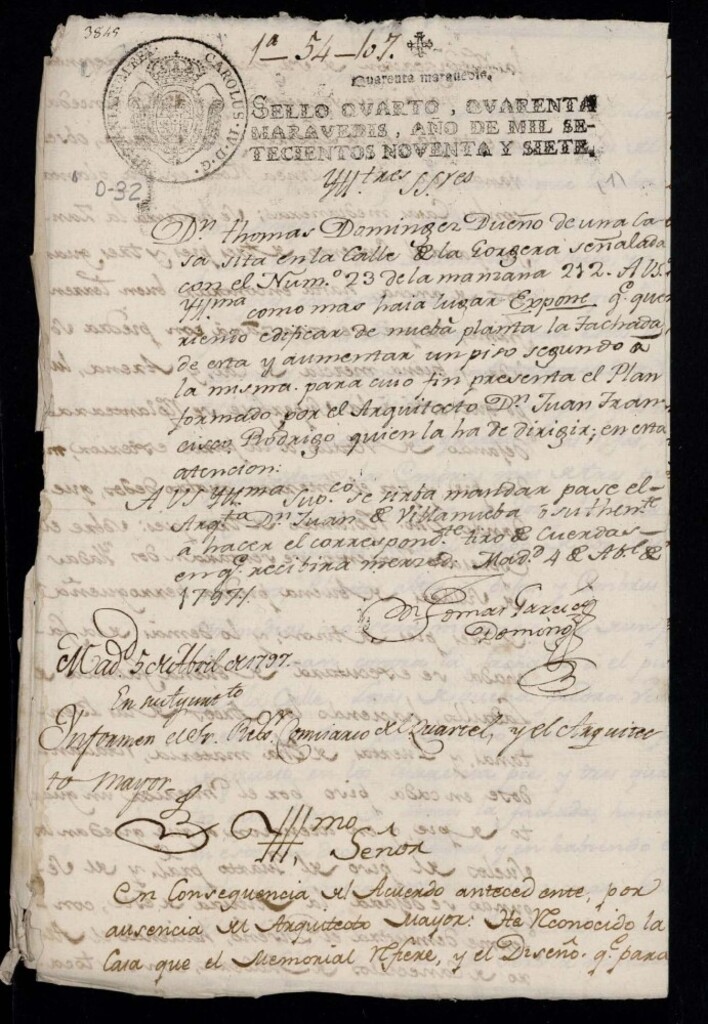 3845
1ª - 54 - 107.
Quarenta maravedis.
CAROLUS·IV·D·G·
SELLO QVARTO, QVARENTA
MARAVEDIS, AÑO DE MIL SE-
TECIENTOS NOVENTA Y SIETE.
D-32
(1)
Yll.tres SS.res
Dn. thomas Dominguez Dueño de una Ca-
sa sita en la Calle de la Gorgera señalada
con el Num.º 23 de la manzana 212. A V.S.
Yll.ma como mas haia lugar Expone q.e que-
riendo edificar de nueba planta la Fachada
de esta y aumentar un piso segundo a
la misma. para cuio fin presenta el Plan
formado, por el Arquitecto Dn. Juan Fran-
cisco Rodrigo quien la ha de dirigir; en esta
atencion:
A VS Yll.ma Sup.co se sirba mandar pase el
Arq.ta Dn. Juan de Villanueba ô su then.te
a hacer el correspond.te tiro de Cuerdas
en q.e recivira merzed: Mad.d 4 de Ab.l de
1797.
Dn Tomas Garcia
Doming
Mad.d 5 de Abril de 1797.
En su Ayunt.to
Informen el Sr. Rex.r Comisario del Quartel, y el Arquitec
to mayor.
Yll.mo
Señor
En Consequencia del Acuerdo antecedente, por
ausencia del Arquitecto Mayor: He Reconocido la
Casa que el Memorial Refiere, y el Diseño. q.e para